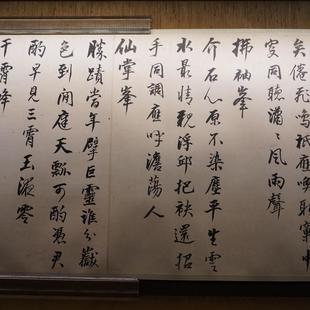 矣倦飛鳴祇應喚取中
叟同聽瀟瀟風雨聲
拂袖峯
介石心原不染塵平生雲
水最情親浮邱把袂還招
手同調應呼澹蕩人
仙掌峯
勝蹟當年擘巨靈誰分嶽
色到閒庭天瓢可酌憑君
酌早見三霄玉液零
干霄峰